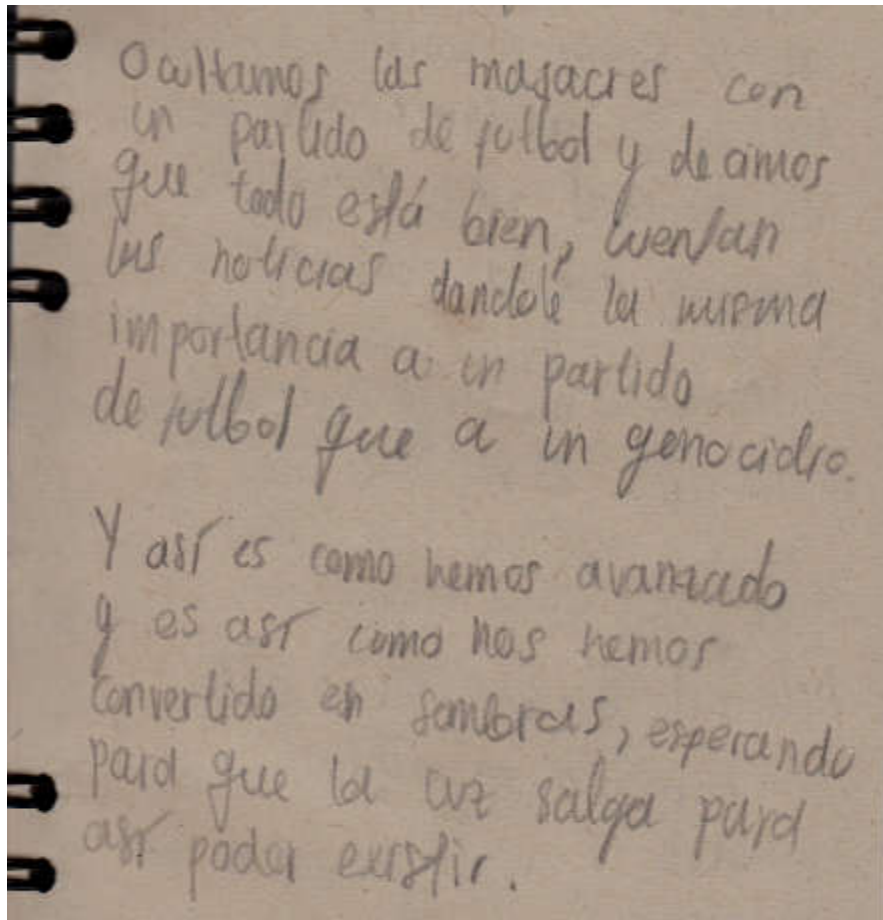 Ocultamos las masacres con
un partido de futbol y decimos
que todo está bien, cuentan
las noticias dandole la misma
importancia a un partido
de futbol que a un genocidio.
Y así es como hemos avanzado
y es así como nos hemos
convertido en sombras, esperando
para que la luz salga para
así poder existir.